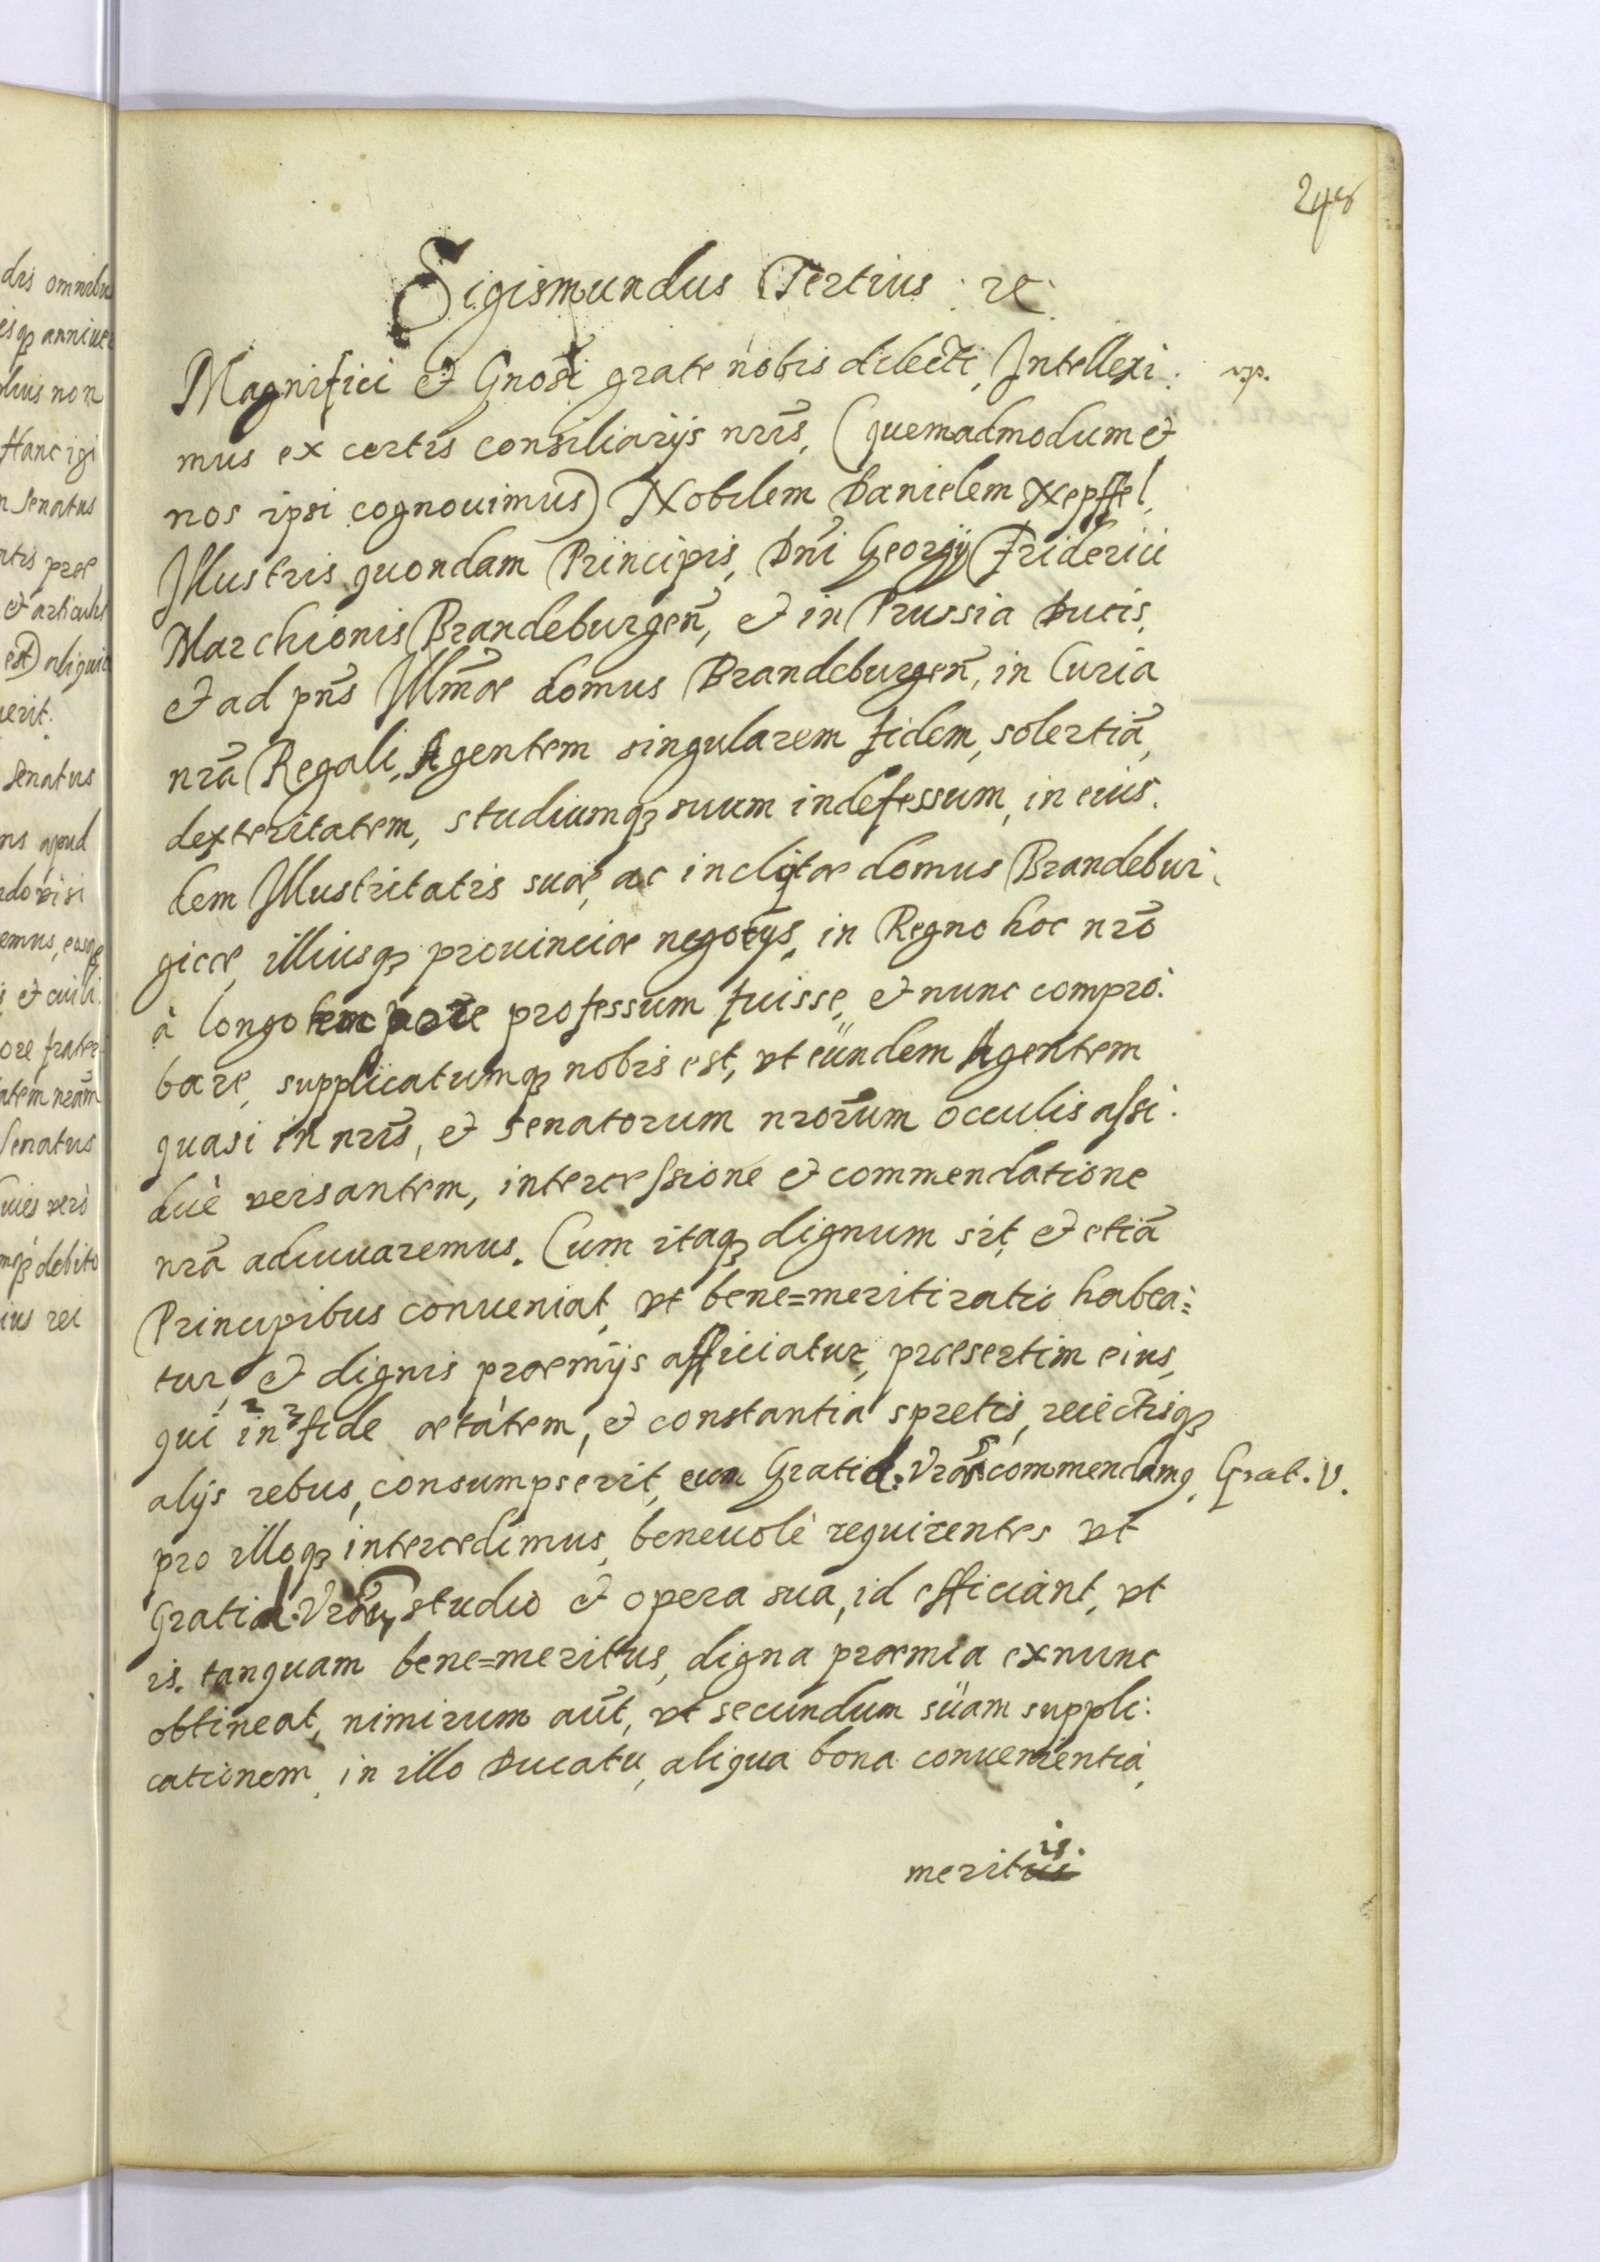 248
Sigismundus Tertius etc
Magnifici et Gnosi grate nobis dilecti, Intellexi:
mus ex certis consiliarijs nris, (quemadmodum et
nos ipsi cognouimus) Nobilem Danielem Nepffel,
Illustris quondam Principis, Dni Georgij Friderici
Marchionis Brandeburgen, et in Prussia Ducis,
et ad pns Illmae domus Brandeburgen, in Curia
nra Regali, Agentem singularem fidem, solertia,
dexteritatem, studiumq suum indefessum, in eius:
dem Illustritatis suae, ac inclytae domus Brandebur:
gicae, illiusq prouinciae negotijs, in Regno hoc nro
à longo tempore professum fuisse, et nunc compro:
bare, supplicatumq nobis est, vt eundem Agentem
quasi in nris, et senatorum nrorum occulis assi:
duè versantem, intercessione et commendatione
nra adiuuaremus. Cum itaq dignum sit, et etia
Principibus conueniat, vt bene=meriti ratio habea:
tur, et dignis praemijs afficiatur, praesertim eius,
qui in fide aetatem, et constantia spretis, reiectisq
alijs rebus, consumpserit, eum Gratid. Vris commendamq, Grat. V.
pro illoq intercedimus, beneuolè requirentes vt
Gratid. Vrae studio et opera sua, id efficiant, vt
is. tanquam bene=meritus, digna praemia ex nunc
obtineat, nimirum aut, vt secundum suam suppli:
cationem, in illo Ducatu, aliqua bona conuenientia,
meritis.
dis omnibu
esq anniuer
non
Hanc igi
n Senatus
ntis prae
et articulis
est) aliquid
uerit.
senatus
ns apud
emus, eosq
et ciuili
ore frater
atem nram
Senatus
uies verò
mq debito
ius rei